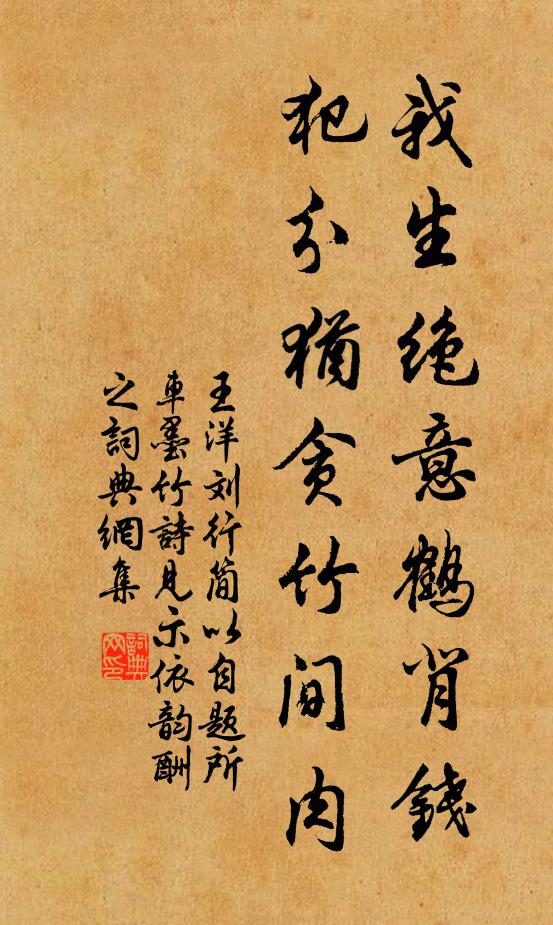 我生绝意鹤背錢
犯分猶贪竹间肉
王洋刘行简以自题所
車墨竹詩見示依韵酬
之詞典網集
詞典网印